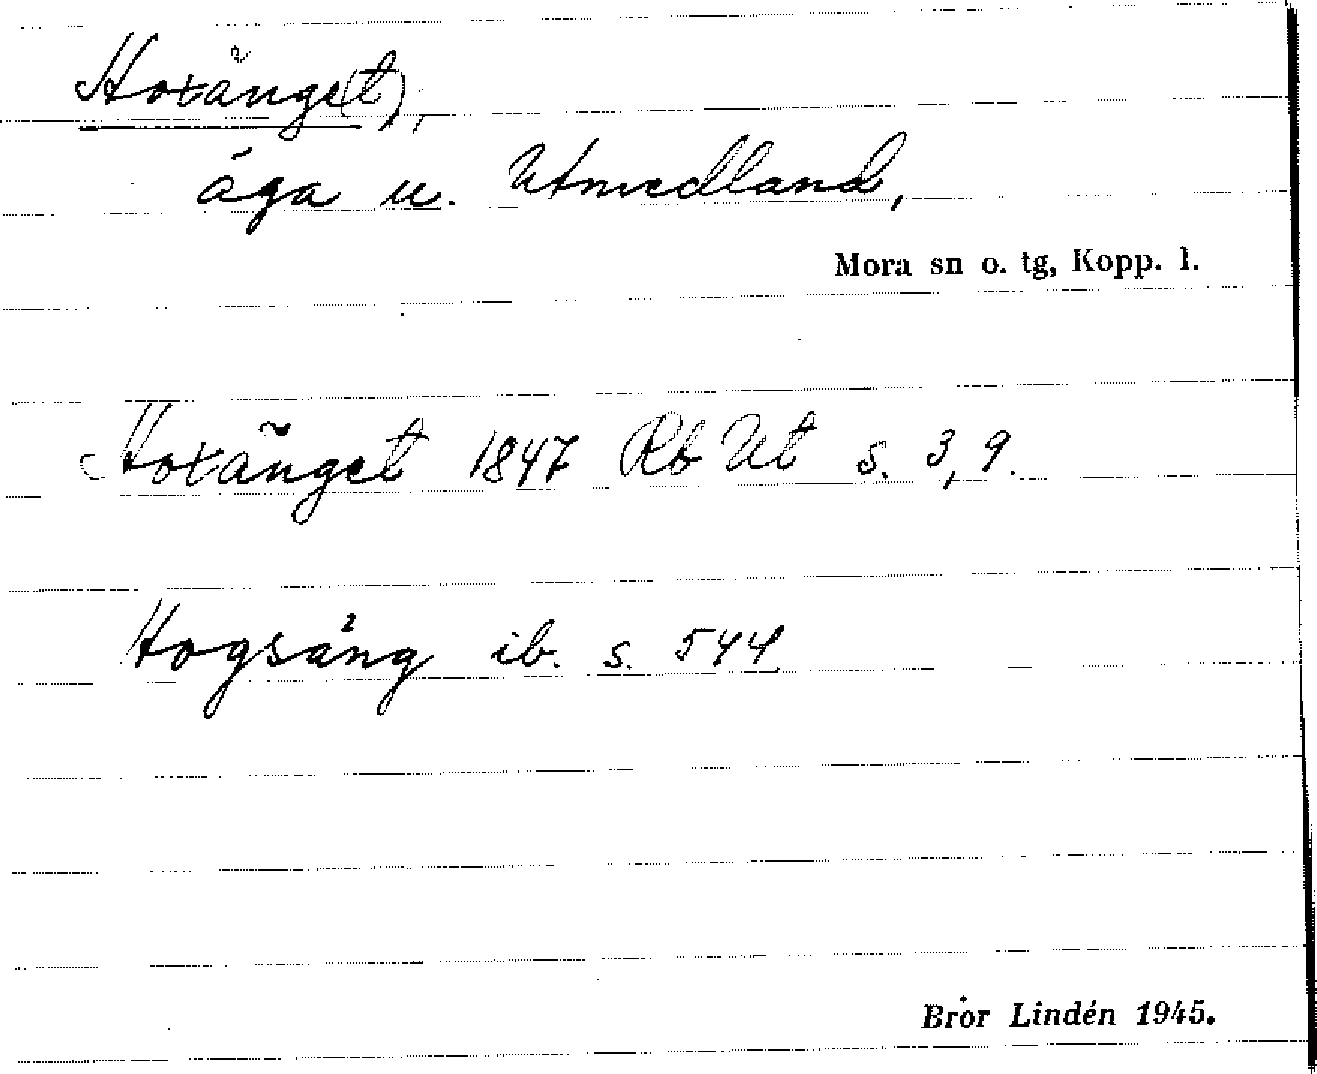 Hoxänget(t),
äga u. Utmedland,
Mora sn o. tg, Kopp. l.
Hoxänget 1847 Rb Ut s. 3, 9.
Hogsäng ib. s. 544
Bror Lindén 1945.